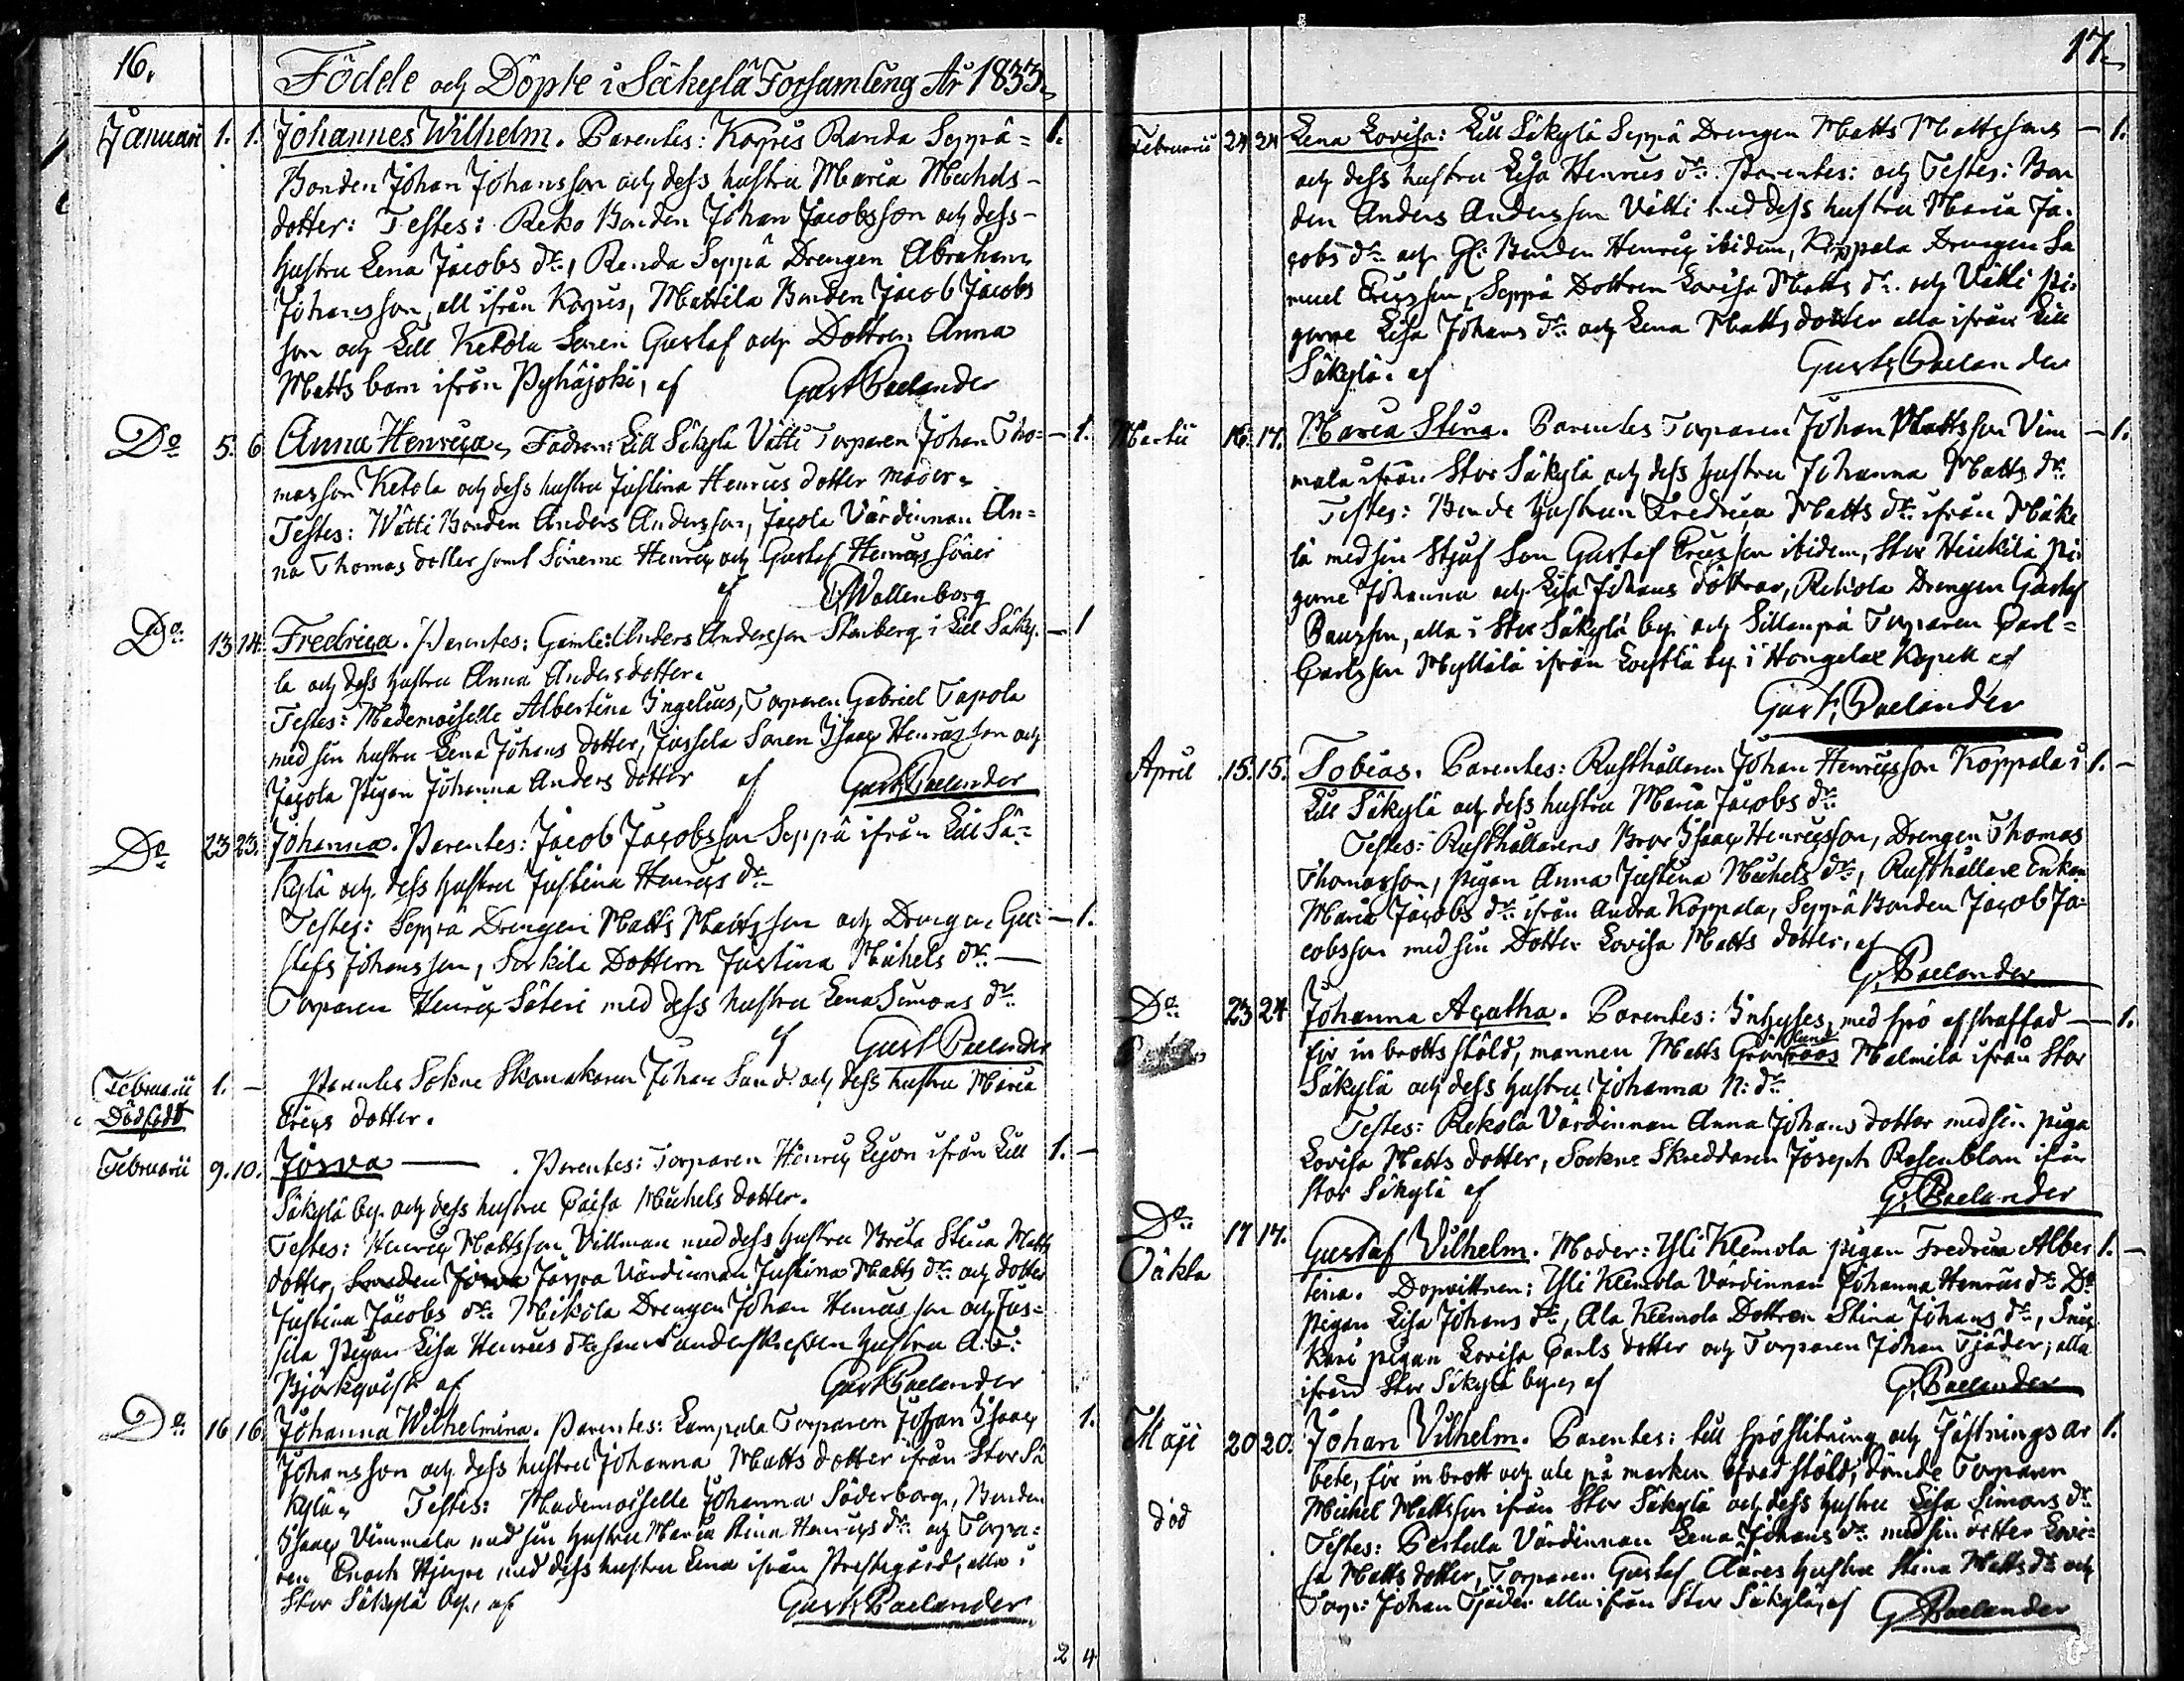 16.
Födde och Döpte i Säkylä Församling År 1833.
Januarii 1. 1. Johannes Wilhelm. Parentes: Korpis Randa Seppä= 1.
Bonden Johan Johansson och dess hustru Maria Michels-
dotter: Testes: Reko Bonden Johan Jacobsson och dess-
hustru Lena Jacobs dr, Randa Seppä Drengen Abraham
Johansson, all ifrån Korpis, Mattila Bonden Jacob Jacobs
son och Lill Ketola Sonen Gustaf och Dottren Anna
Matts barn ifrån Pyhäjoki, af Gust. Paelander
Do 5. 6 Anna Henrica, Fadren: Lill Säkylä Vätti Torparen Johan Tho= - 1.
masson Ketola och dess hustru Justina Henrics dotter moder.
Testes: Wätti Bonden Anders Andersson, Jacola Värdinnan An=
na Thomas dotter samt Sönerne Henric och Gustaf Henrics söner
af Wallenborg
Do 13 14. Fredrica. Parentes: Gamle: Anders Andersson Stenberg i Lill Säky. - 1
lä och dess hustru Anna Andersdotter.
Testes: Mademoiselle Albertina Ingelius, Torparen Gabriel Tapola
med sin hustru Lena Johans dotter, Jussila Sonen Isaac Henricsson och
Jacola Pigan Johanna Anders dotter af Gust. Paelander
Do 23 23. Johanna. Parentes: Jacob Jacobsson Seppä ifrån Lill Sä=
kylä och dess hustru Justina Henrics dr
Testes: Seppä Drengen Matts Mattsson och Drengen Gu= - 1.
stafs Johansson, Sorkila Dottern Justina Michels dr. -
Torparen Henric Säteri med dess hustru Lena Simons dr.
af Gust Paelander
Februarii 1. - Parentes Sokne Skomakaren Johan Sund och dess hustru Maria
Dödfödt Erics dotter.
Februarii 9. 10. Josva - . Parentes: Torparen Henric Lejon ifrån Lill 1. -
Säkylä by och dess hustru Caisa Michels dotter.
Testes: Henric Mattsson Villman med dess hustru Breta Stina Matts
dotter, Jaspa Värdinnan Justina Matts dr. och dotter
Justina Jacobs dr. Mikola Drengen Johan Henricsson och Jus=
sila Pigan Lisa Henrics dr. samt hustru
Björkqvist af Gust Paelander
Do 16 16. Johanna Wilhelmina. Parentes: Lampola Torparen Johan Isaac 1.
Johansson och dess hustru Johanna Matts dotter ifrån Stor Sä
kylä, Testes: Mademoiselle Johanna Söderborg, Bonden
Isaac Vimmala med sin hustru Maria Stina Henrics dr. och Torpa=
ren Enoch Hjerpe med dess hustru Lena ifrån Prestegård, alla i
Stor Säkylä by, af Gust, Paelander
2 4
17.
Februarii 24 24 Lena Lovisa: Lill Säkylä Seppä Drengen Matts Mattssons - 1.
och dess hustru Lisa Henrics dr. Parentes: och Testes: Bon
den Anders Andersson Vätti med dess hustru Maria Ja.
cobs dr. och Gl: Bonden Henric ibidem, Koppala Drengen Sa
muel Ericsson, Seppä Dottren Lovisa Matts dr. och Vätti Pi=
gorne Lisa Johans dr. och Lena Matts dotter alla ifrån Lill
Säkylä. af Gust, Paelander
Martii 16. 17. Maria Stina. Parentes Torparen Johan Mattsson Vim - 1.
mala ifrån Stor Säkylä och dess hustru Johanna Matts dr.
Testes: Bonde Hustrun Fredrica Matts dr. ifrån Mäke
lä med sin Stjuf Son Gustaf Ericsson ibidem, Stor Heickilä Pi
gorne Johanna och Lisa Johans döttrar, Rekola Drengen Gustaf
alla i Stor Säkylä by och Sillanpä Torparen Carl=
Carlsson Myllälä ifrån by i Kapell af
Gust, Paelander
April 15. 15. Tobias. Parentes: Rusthållaren Johan Henricsson Koppala i 1. -
Lill Säkylä och dess hustru Maria Jacobs dr.
Testes: Rusthållarens Bror Isaac Henricsson, Drengen Thomas
Thomasson, Pigan Anna Justina Michels dr., Rusthållare Enkan
Maria Jacobs dr. ifrån Andra Koppala, Seppä Bonden Jacob Ja=
cobsson med sin Dotter Lovisa Matts dotter, af
G. Paelander
Do 23 24 Johanna Agatha. Parentes: Inhyses, med spö afstraffad - 1.
för inbrotts stöld, mannen Matts Grönroos lund Malmila ifrån Stor
Säkylä och dess hustru Johanna N: dr.
Testes: Rekola Värdinnan Anna Johans dotter med sin piga
Lovisa Matts dotter, Sockne Skreddaren Joseph Rosenblom ifrån
Stor Säkylä af G. Paelander
Do 17 17. Gustaf Vilhelm. Moder: Yli Klemola pigan Fredrica Alber 1. -
Oäkta tina. Dopvittnen: Yli Klemola Värdinnan Johanna Henrics dr: Do
Pigan Lisa Johans dr., Ala Klemola Dottren Stina Johans dr.,
Kari pigan Lovisa Carls dotter och Torparen Johan Tjäder; alla
ifrån Stor Säkylä by, af G. Paelander
Maji 20 20. Johan Vilhelm. Parentes: till Spöslitning och Fästnings ar 1.
bete, för inbrott och ute på marken öfvad stöld, dömde Torparen
död Michel Mattsson ifrån Stor Säkylä och dess hustru Lisa Simons dr.
Testes: Pertula Värdinnan Lena Johans dr. med sin dotter Lovi=
sa Matts dotter, Torparen Gustaf hustru Stina Matts dr. och
Torp: Johan Tjäder alla ifrån Stor Säkylä, af G Paelander